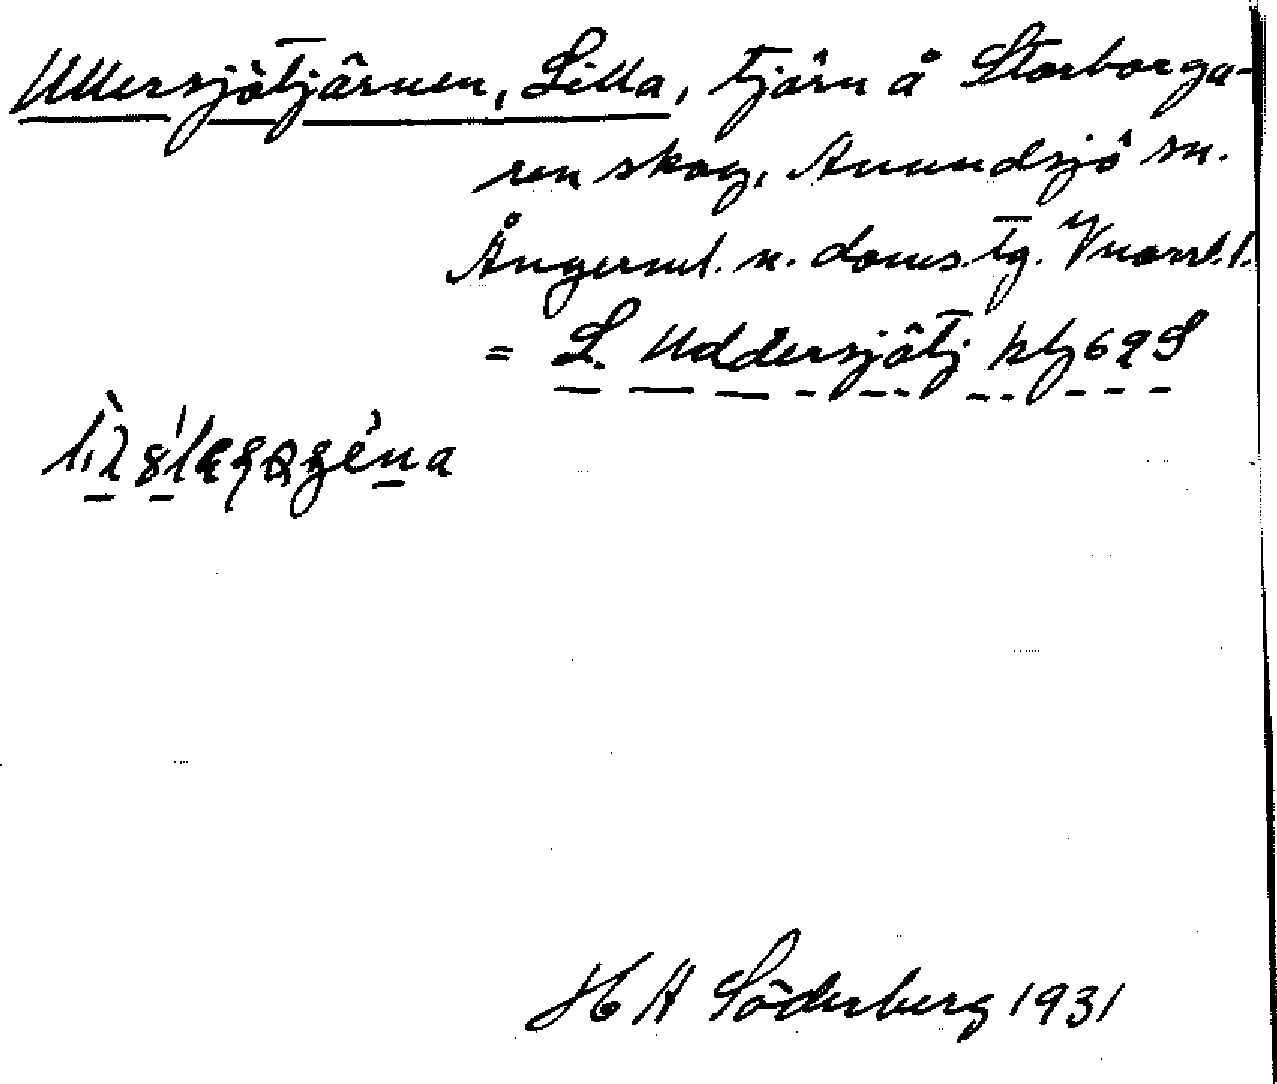 Ullersjötjärnen, Lilla, tjärn å Storborga-
ren skog, Anundsjö sn.
Ångerml. n. doms. tg. Vnorrl. l.
= L. Uddersjötj kbl 69 S
H A Söderberg 1931